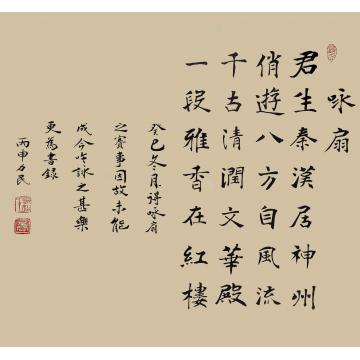 咏扇
君生秦漢居神州
俏遊八方自風流
千古清潤文華殿
一段雅香在紅樓
癸巳冬月得咏扇
之賽事因故未能
成今吟詠之甚樂
更為書錄
丙申力民